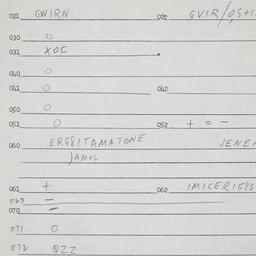 021 GWIRN 022 GVIR/0,5+1
030 0
031 XOC
040 0
041 0 042
050 0
051 0 052 + = -
060 ERG8ITAMATONE JENE
)AMOL
061 + 062
063 -
070 -
071 0
072 QZZ